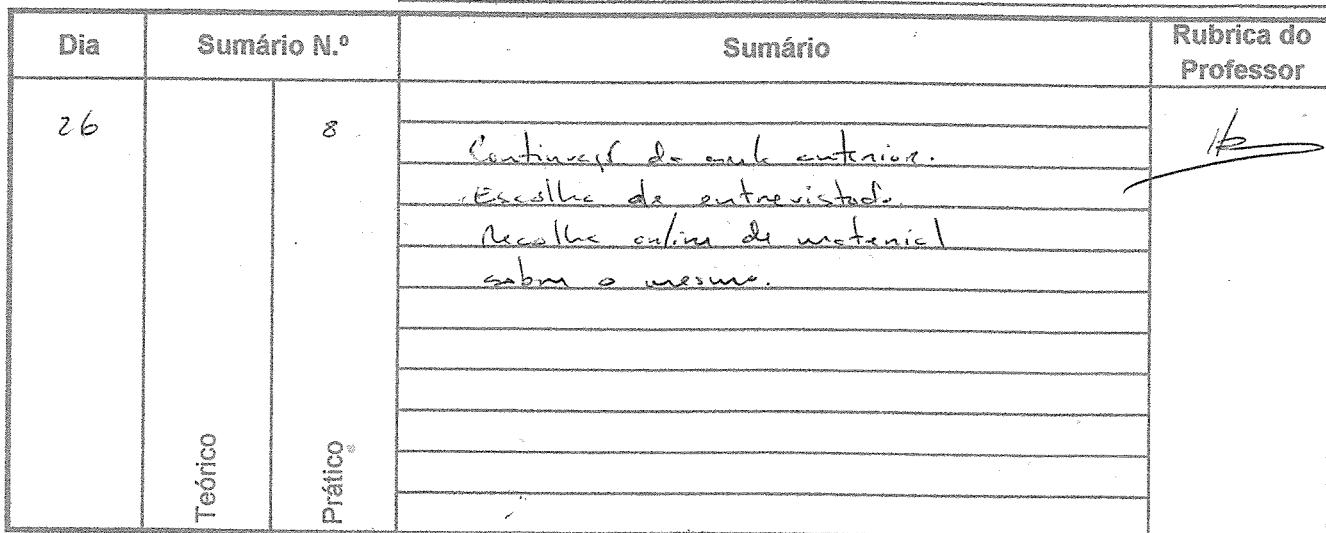 Dia Sumário N.º Sumário Rubrica do Professor
26 8
Continuaçã da aula anterior.
Escolha de entrevistado.
Recolha online de material
sobre o mesmo.
Teórico Prático